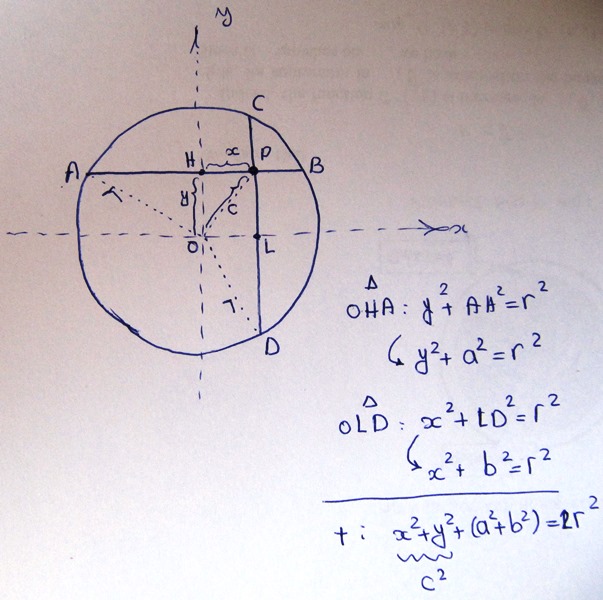 y
C
A H x P B
y c
r
O L x
r
D
Δ
OHA: y² + AH² = r²
y² + a² = r²
Δ
OLD: x² + LD² = r²
x² + b² = r²
+: x² + y² + (a² + b²) = 2r²
c²